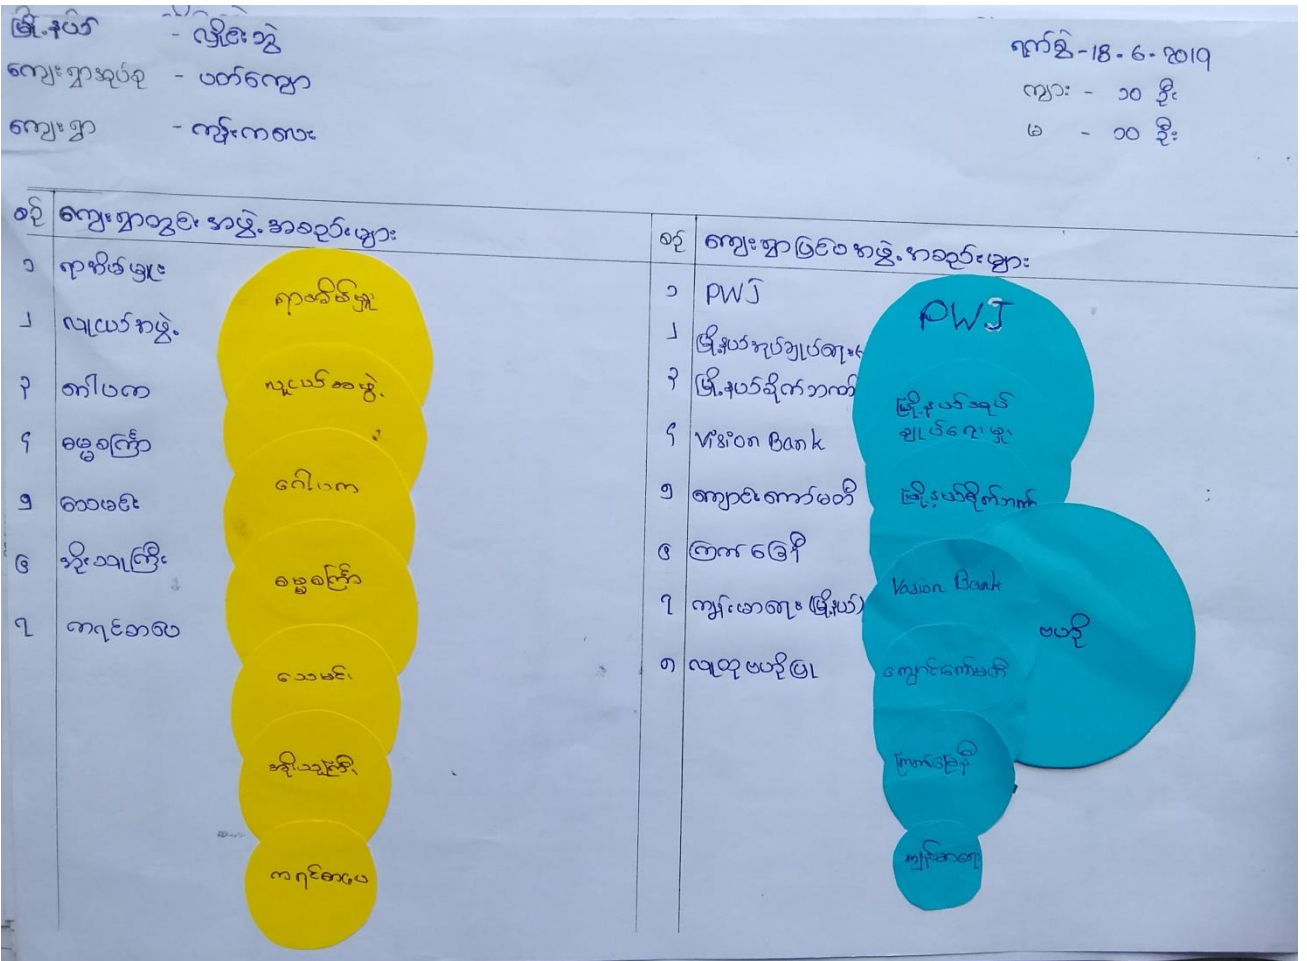 မြို့နယ် - လှိုင်းဘွဲ
ကျေးရွာအုပ်စု - ပတ်ကျော
ကျေးရွာ - ကျွန်းကလေး
ရက်စွဲ - 18 - 6 - 2019
ကျား - ၁၀ ဦး
မ - ၁၀ ဦး
စဉ် ကျေးရွာတွင်း အဖွဲ့အစည်းများ
၁ ရာအိမ်မှူး
၂ လူငယ်အဖွဲ့
၃ ဂေါပက
၄ ဓမ္မစင်္ကြာ
၅ သေမင်း
၆ အိုးသူကြီး
၇ ကရင်စာပေ
ရာအိမ်မှူး
လူငယ်အဖွဲ့
ဂေါပက
ဓမ္မစင်္ကြာ
သေမင်း
အိုးသူကြီး
ကရင်စာပေ
စဉ် ကျေးရွာပြင်ပအဖွဲ့အစည်းများ
၁ PWJ
၂ မြို့နယ်အုပ်ချုပ်ရေး
၃ မြို့နယ်စိုက်ဘဏ်
၄ Vision Bank
၅ ကျောင်းကော်မတီ
၆ ကြက်ခြေနီ
၇ ကျန်းမာရေး (မြို့နယ်)
၈ လူထုဗဟိုပြု
PWJ
မြို့နယ်အုပ်
ချုပ်ရေးမှူး
မြို့နယ်စိုက်ဘဏ်
Vasion Bank
ဗဟို
ကျောင်းကော်မတီ
ကြက်ခြေနီ
ကျန်းမာရေး